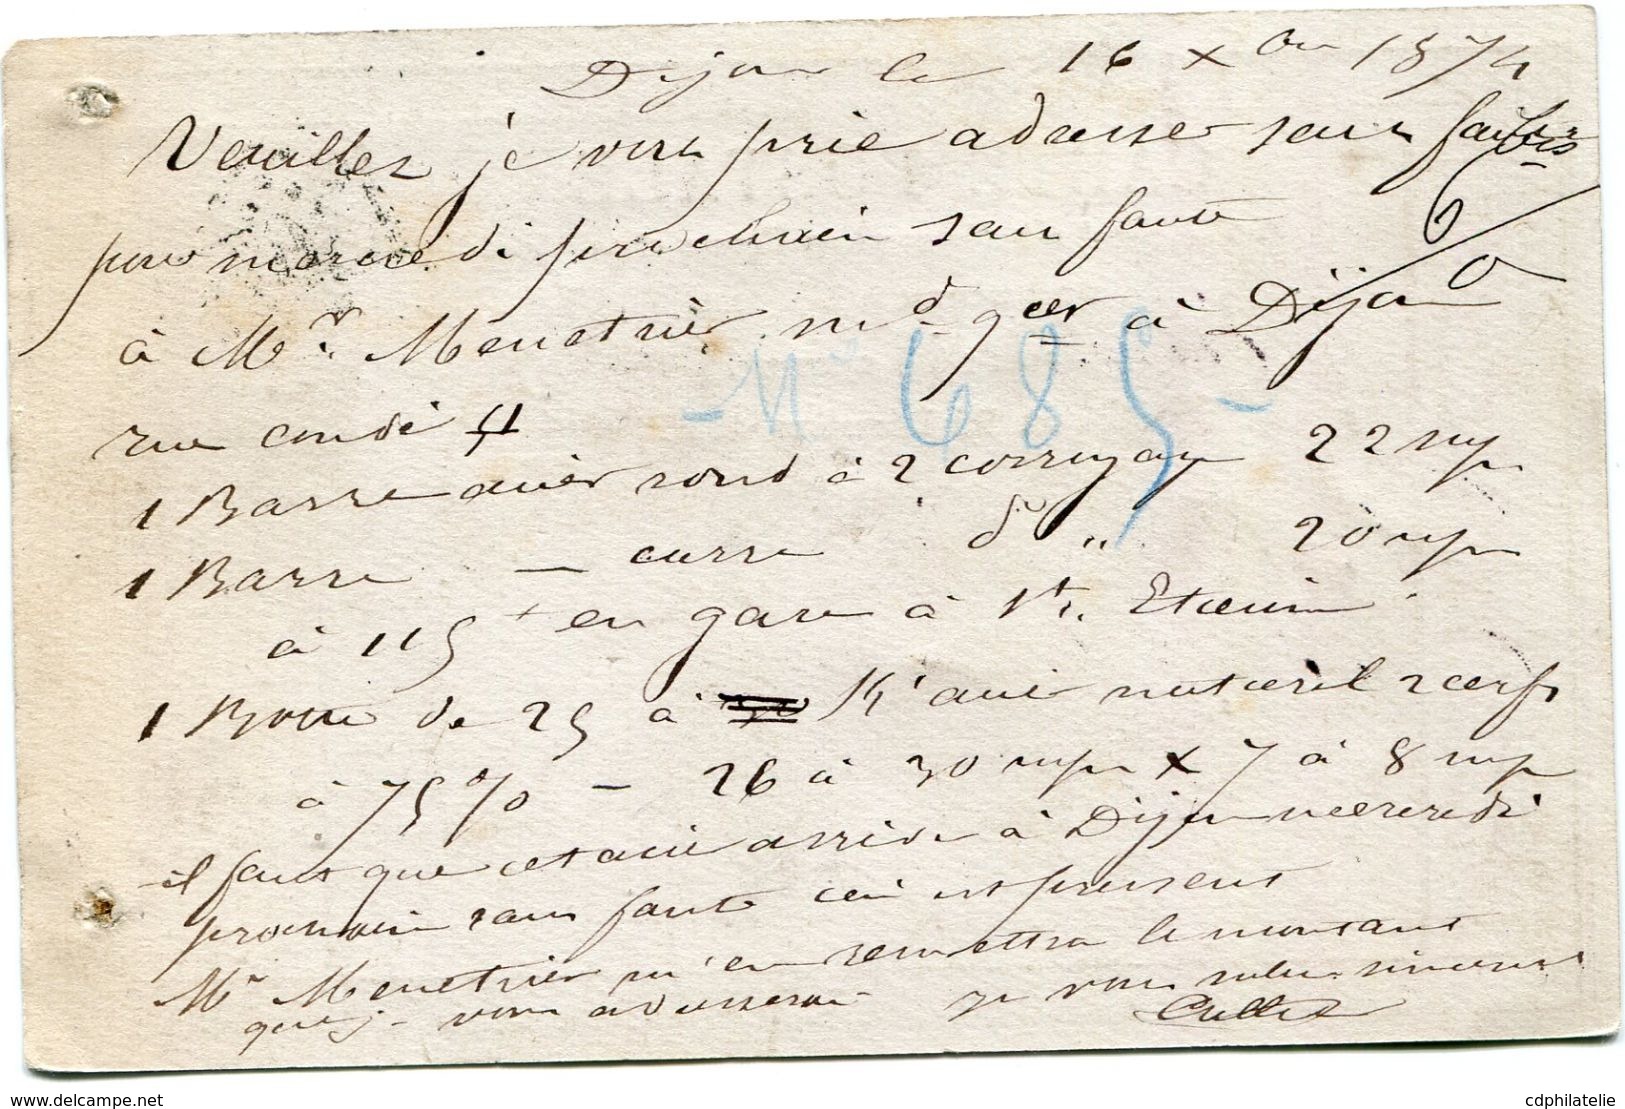 Dijon le 16 Xbre 1874
Veuillez je vous prie adresser sans
pour mercredi prochain sans faute
à Mr. Menetrier md gcer à Dijon
- N° 685 -
rue condé 41
1 Barre acier rond à 2 corroyages 22 m/m
1 Barre — carré d° " 20 m/m
à 115 + en gare à St. Etienne
1 Botte de 25 à K° acier naturel 2 cerfs
à 75 % — 26 à 30 m/m x 7 à 8 m/m
il faut que cet acier arrive à Dijon mercredi
prochain sans faute ceci est pressent
Mr Menetrier m'en remettra le montant
que je vous adresserai je vous salue sincerement
cdphilatelie
www.delcampe.net